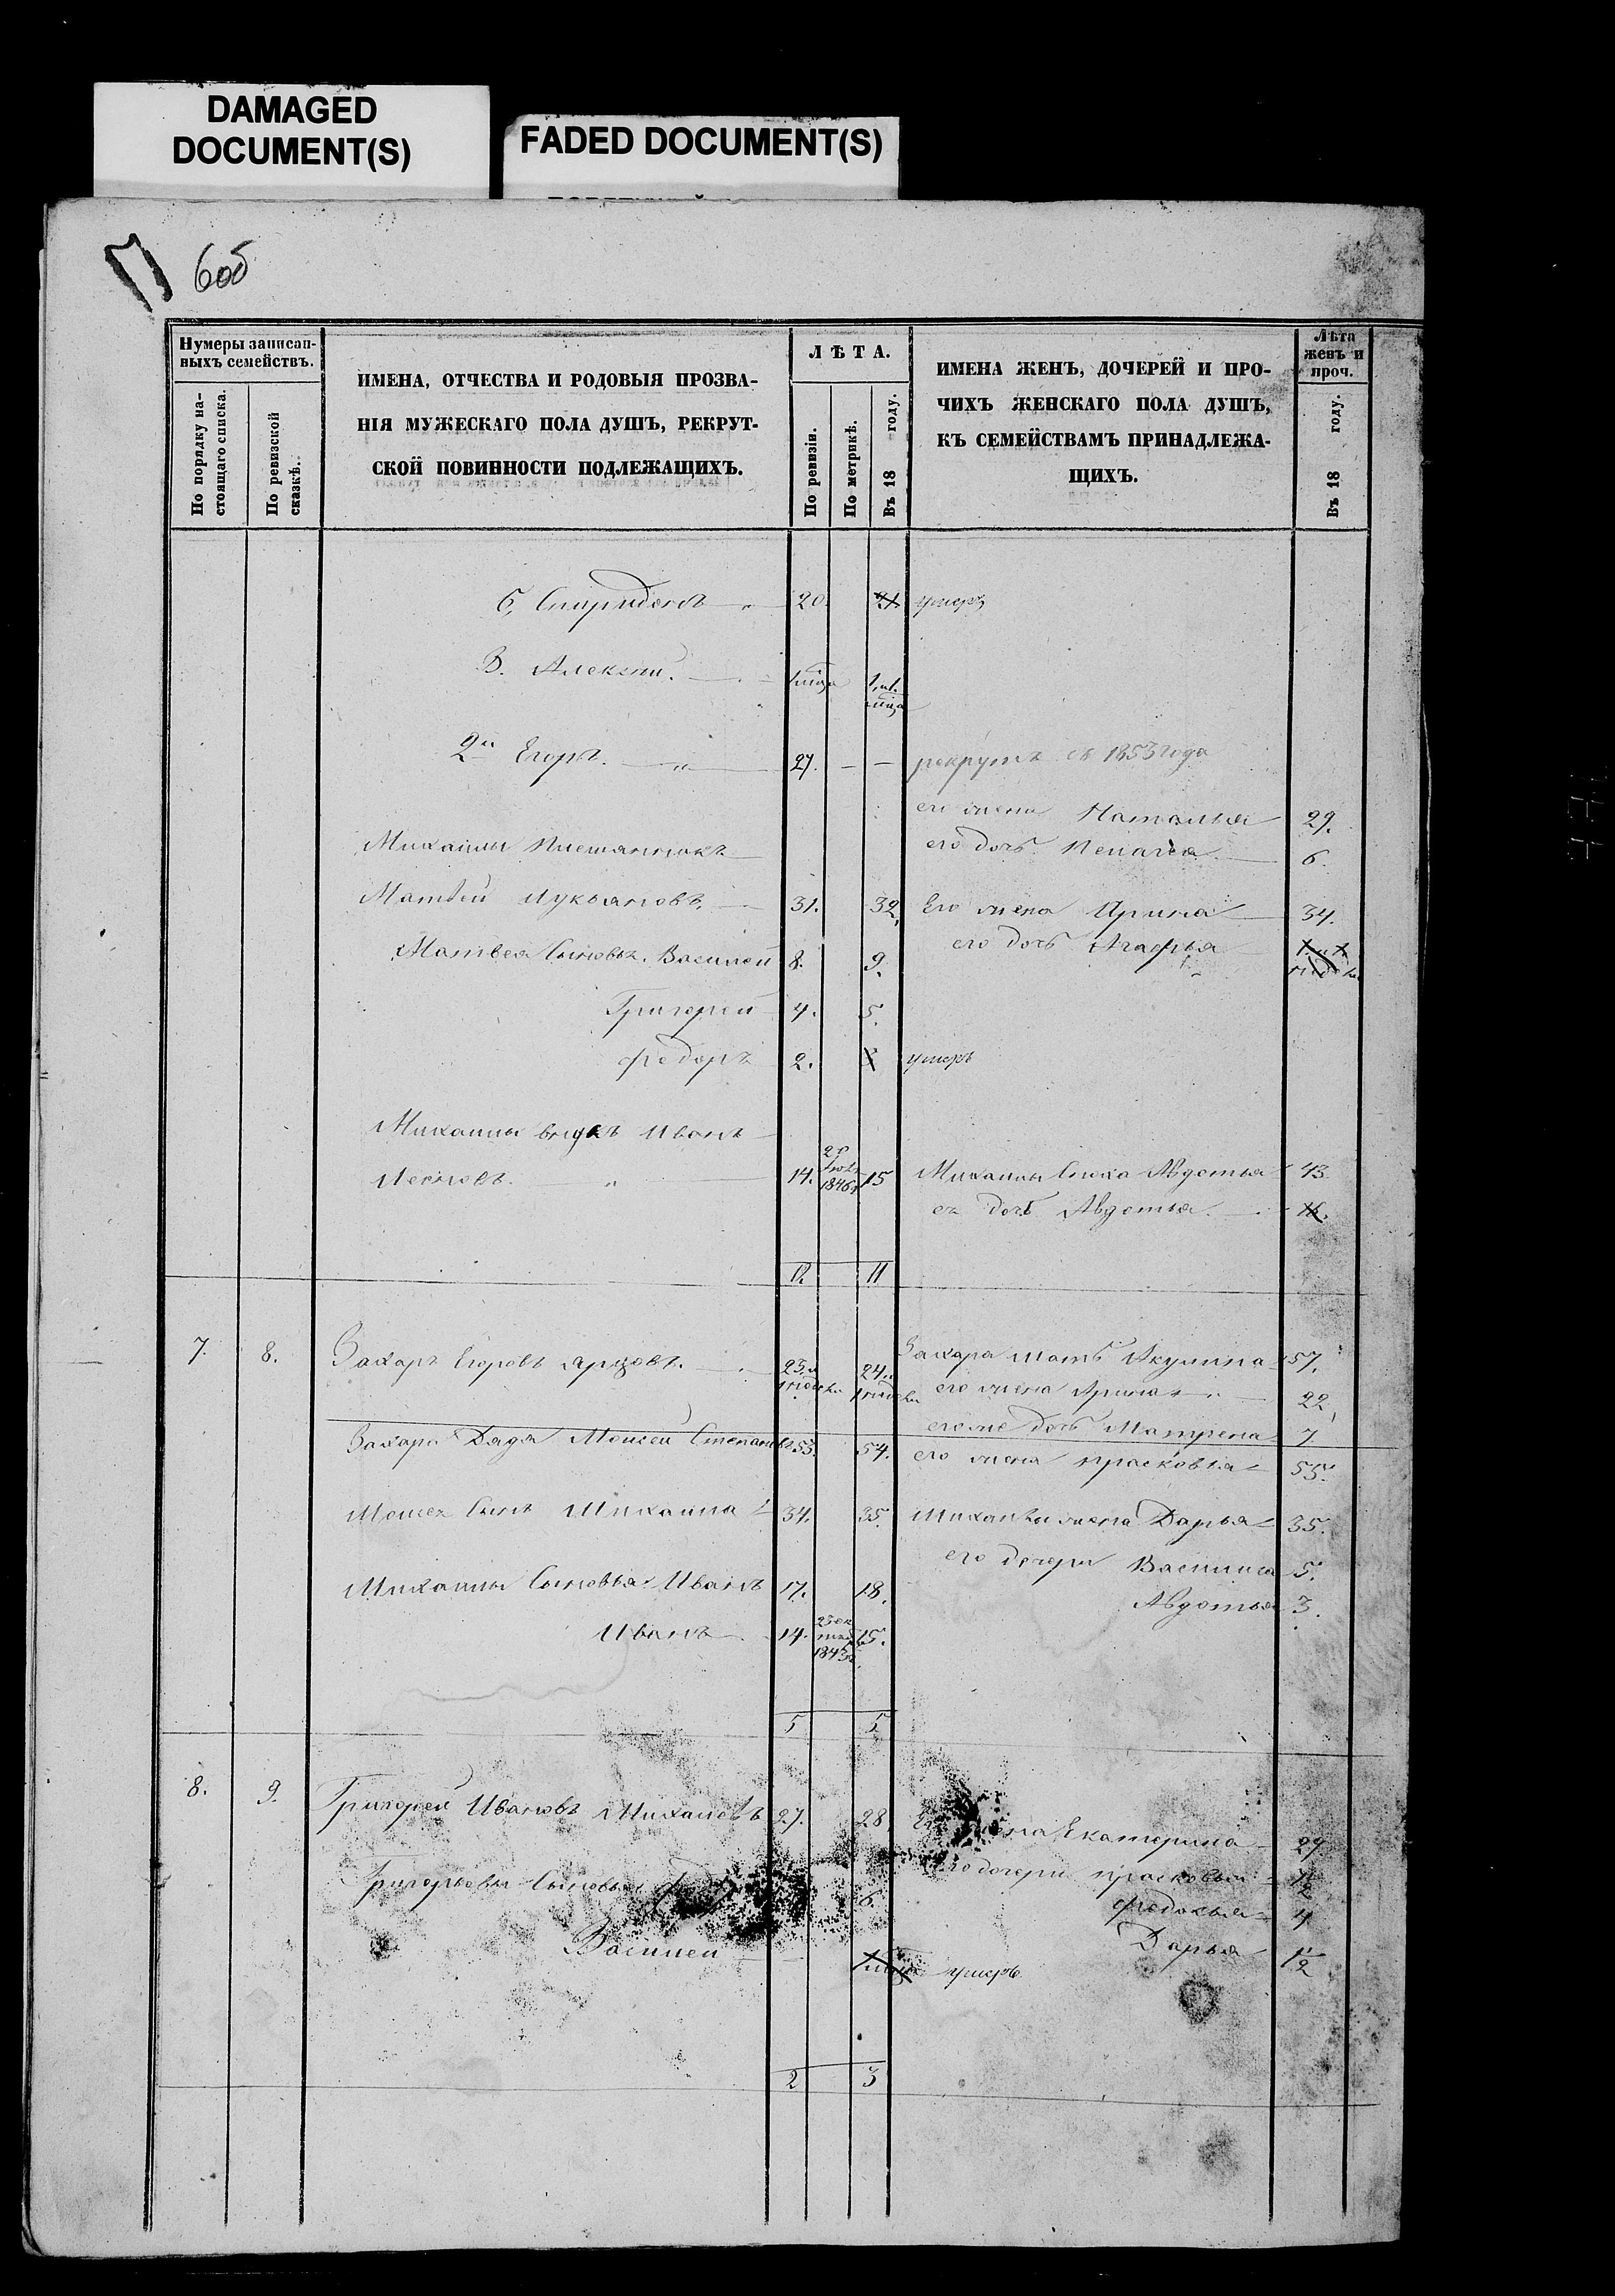 DAMAGED
DOCUMENT(S)
FADED DOCUMENT(S)
6об
Нумеры записан-
ныхъ семействъ.
По порядку на-
стоящаго списка.
По ревизской
сказкѣ.
ИМЕНА, ОТЧЕСТВА И РОДОВЫЯ ПРОЗВА-
НІЯ МУЖЕСКАГО ПОЛА ДУШЪ, РЕКРУТ-
СКОЙ ПОВИННОСТИ ПОДЛЕЖАЩИХЪ.
ЛѢТА.
По ревизіи.
По метрикѣ.
Въ 18 году.
ИМЕНА ЖЕНЪ, ДОЧЕРЕЙ И ПРО-
ЧИХЪ ЖЕНСКАГО ПОЛА ДУШЪ,
КЪ СЕМЕЙСТВАМЪ ПРИНАДЛЕЖА-
ЩИХЪ.
Лѣта
женъ и
проч.
Въ 18 году.
Спиридонъ 20. 21 умеръ
Алексѣй.
2й Егоръ. 27. — — рекрутъ съ 1853 года
его жена Наталья 29.
Михаилы племянникъ его дочь Пелагея 6.
Матвей Лукьяновъ. 31. 32, Его жена Ирина 34.
Матвея Сыновья. Василей 8. 9. его дочь Агафья
Григорей 4. 5.
Федоръ 2. 3 умеръ
Михаилы внукъ Иванъ
14. 15 Михаилы Сноха Авдотья 43
ея дочь Авдотья. 16.
12 11
7. 8. Захаръ Егоровъ 23.и 24.и Захара мать Акулина 57.
его жена Арина 22,
его же дочь Матрена 7
Захара Дядя Моисей Степановъ 53. 54. его жена Прасковья 55.
Моисея Сынъ Михаила 34. 35. Михаилы жена Дарья 35.
его дочери Василиса 5.
Михаилы Сыновья Иванъ 17. 18. Авдотья 3.
Иванъ 14. 15.
5 5
8. 9. Григорей Ивановъ Михалевъ 27. 28 Екатерина 29
Григорьевы Сыновья 6 дочери Прасковья
Федосья 4
Василей умеръ Дарья 1/2
2 3